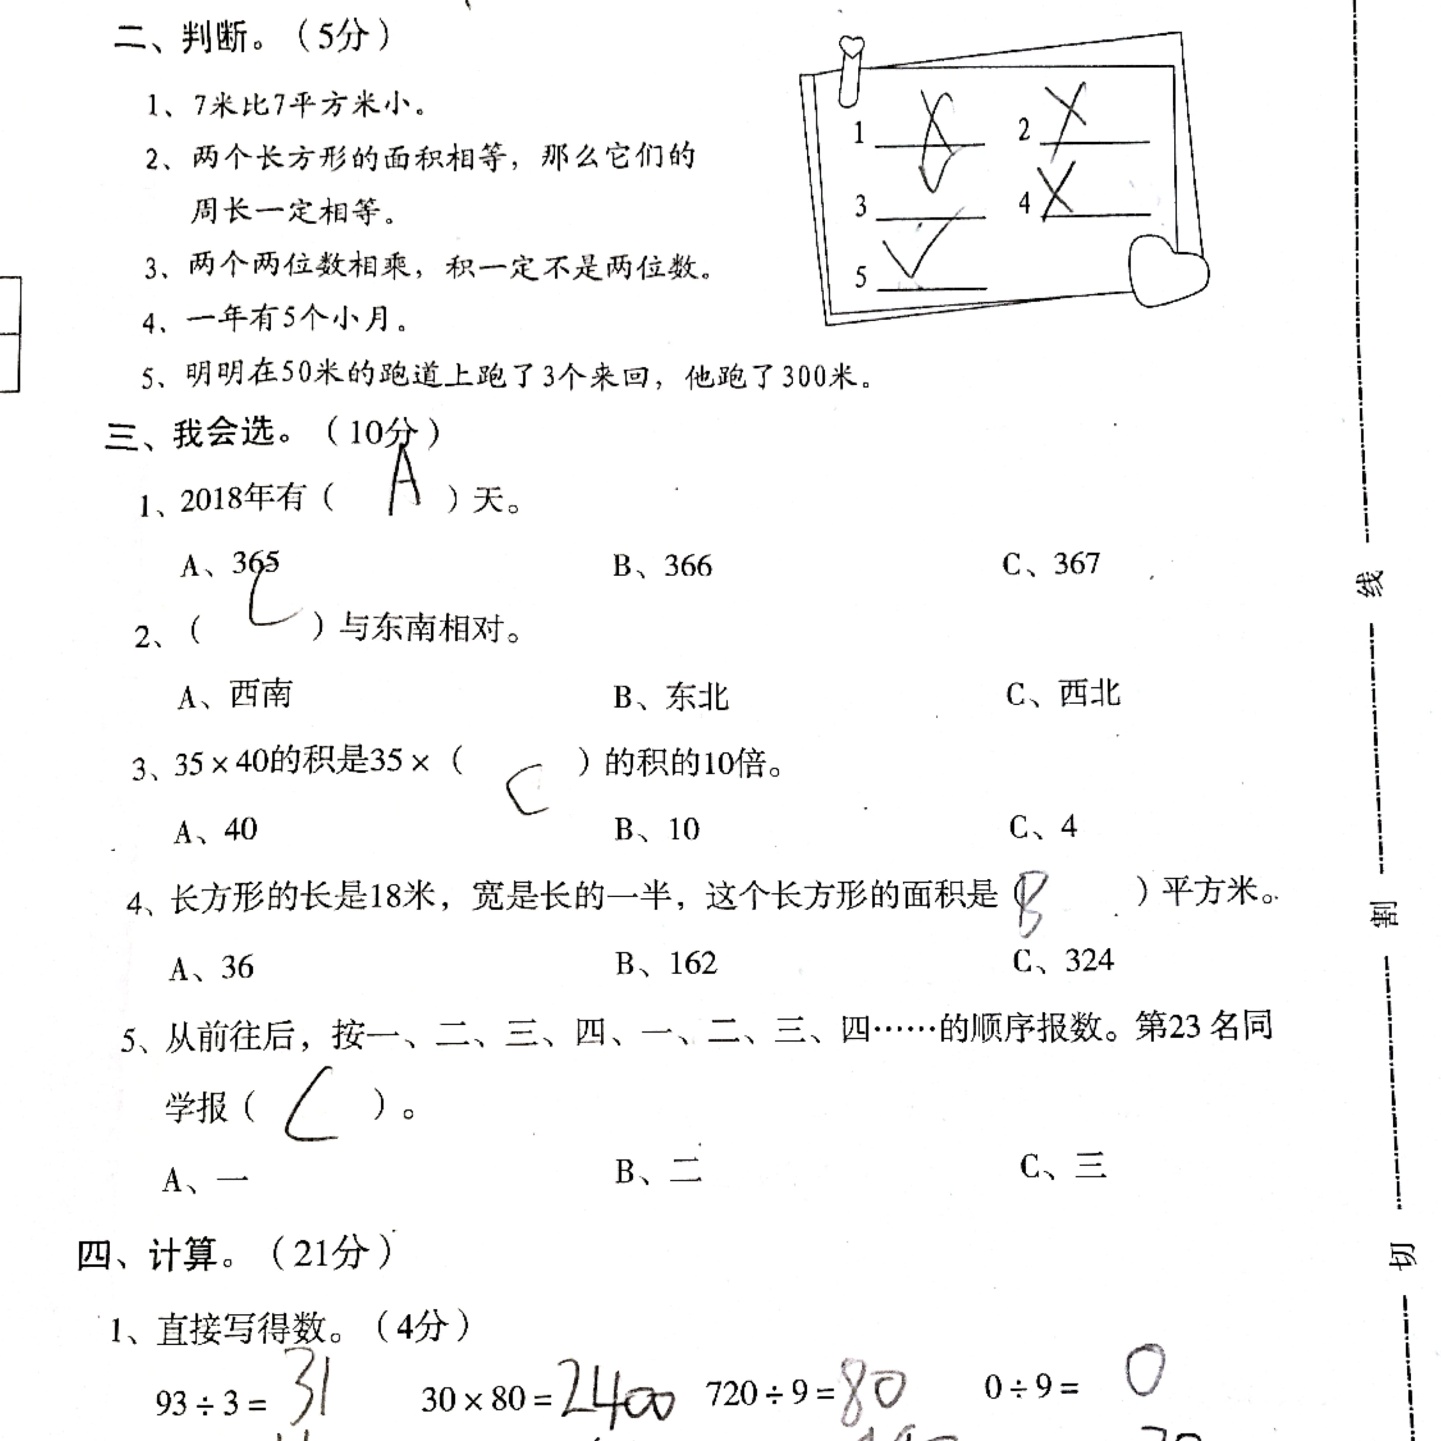 二、判断。（5分）
1、7米比7平方米小。
2、两个长方形的面积相等，那么它们的
周长一定相等。
3、两个两位数相乘，积一定不是两位数。
4、一年有5个小月。
5、明明在50米的跑道上跑了3个来回，他跑了300米。
1 2 ×
3 4 ×
5 ✓
三、我会选。（10分）
1、2018年有（ A ）天。
A、365 B、366 C、367
2、（ C ）与东南相对。
A、西南 B、东北 C、西北
3、35×40的积是35×（ C ）的积的10倍。
A、40 B、10 C、4
4、长方形的长是18米，宽是长的一半，这个长方形的面积是（ B ）平方米。
A、36 B、162 C、324
5、从前往后，按一、二、三、四、一、二、三、四……的顺序报数。第23名同
学报（ C ）。
A、一 B、二 C、三
四、计算。（21分）
1、直接写得数。（4分）
93÷3=31 30×80=2400 720÷9=80 0÷9= 0
线
割
切